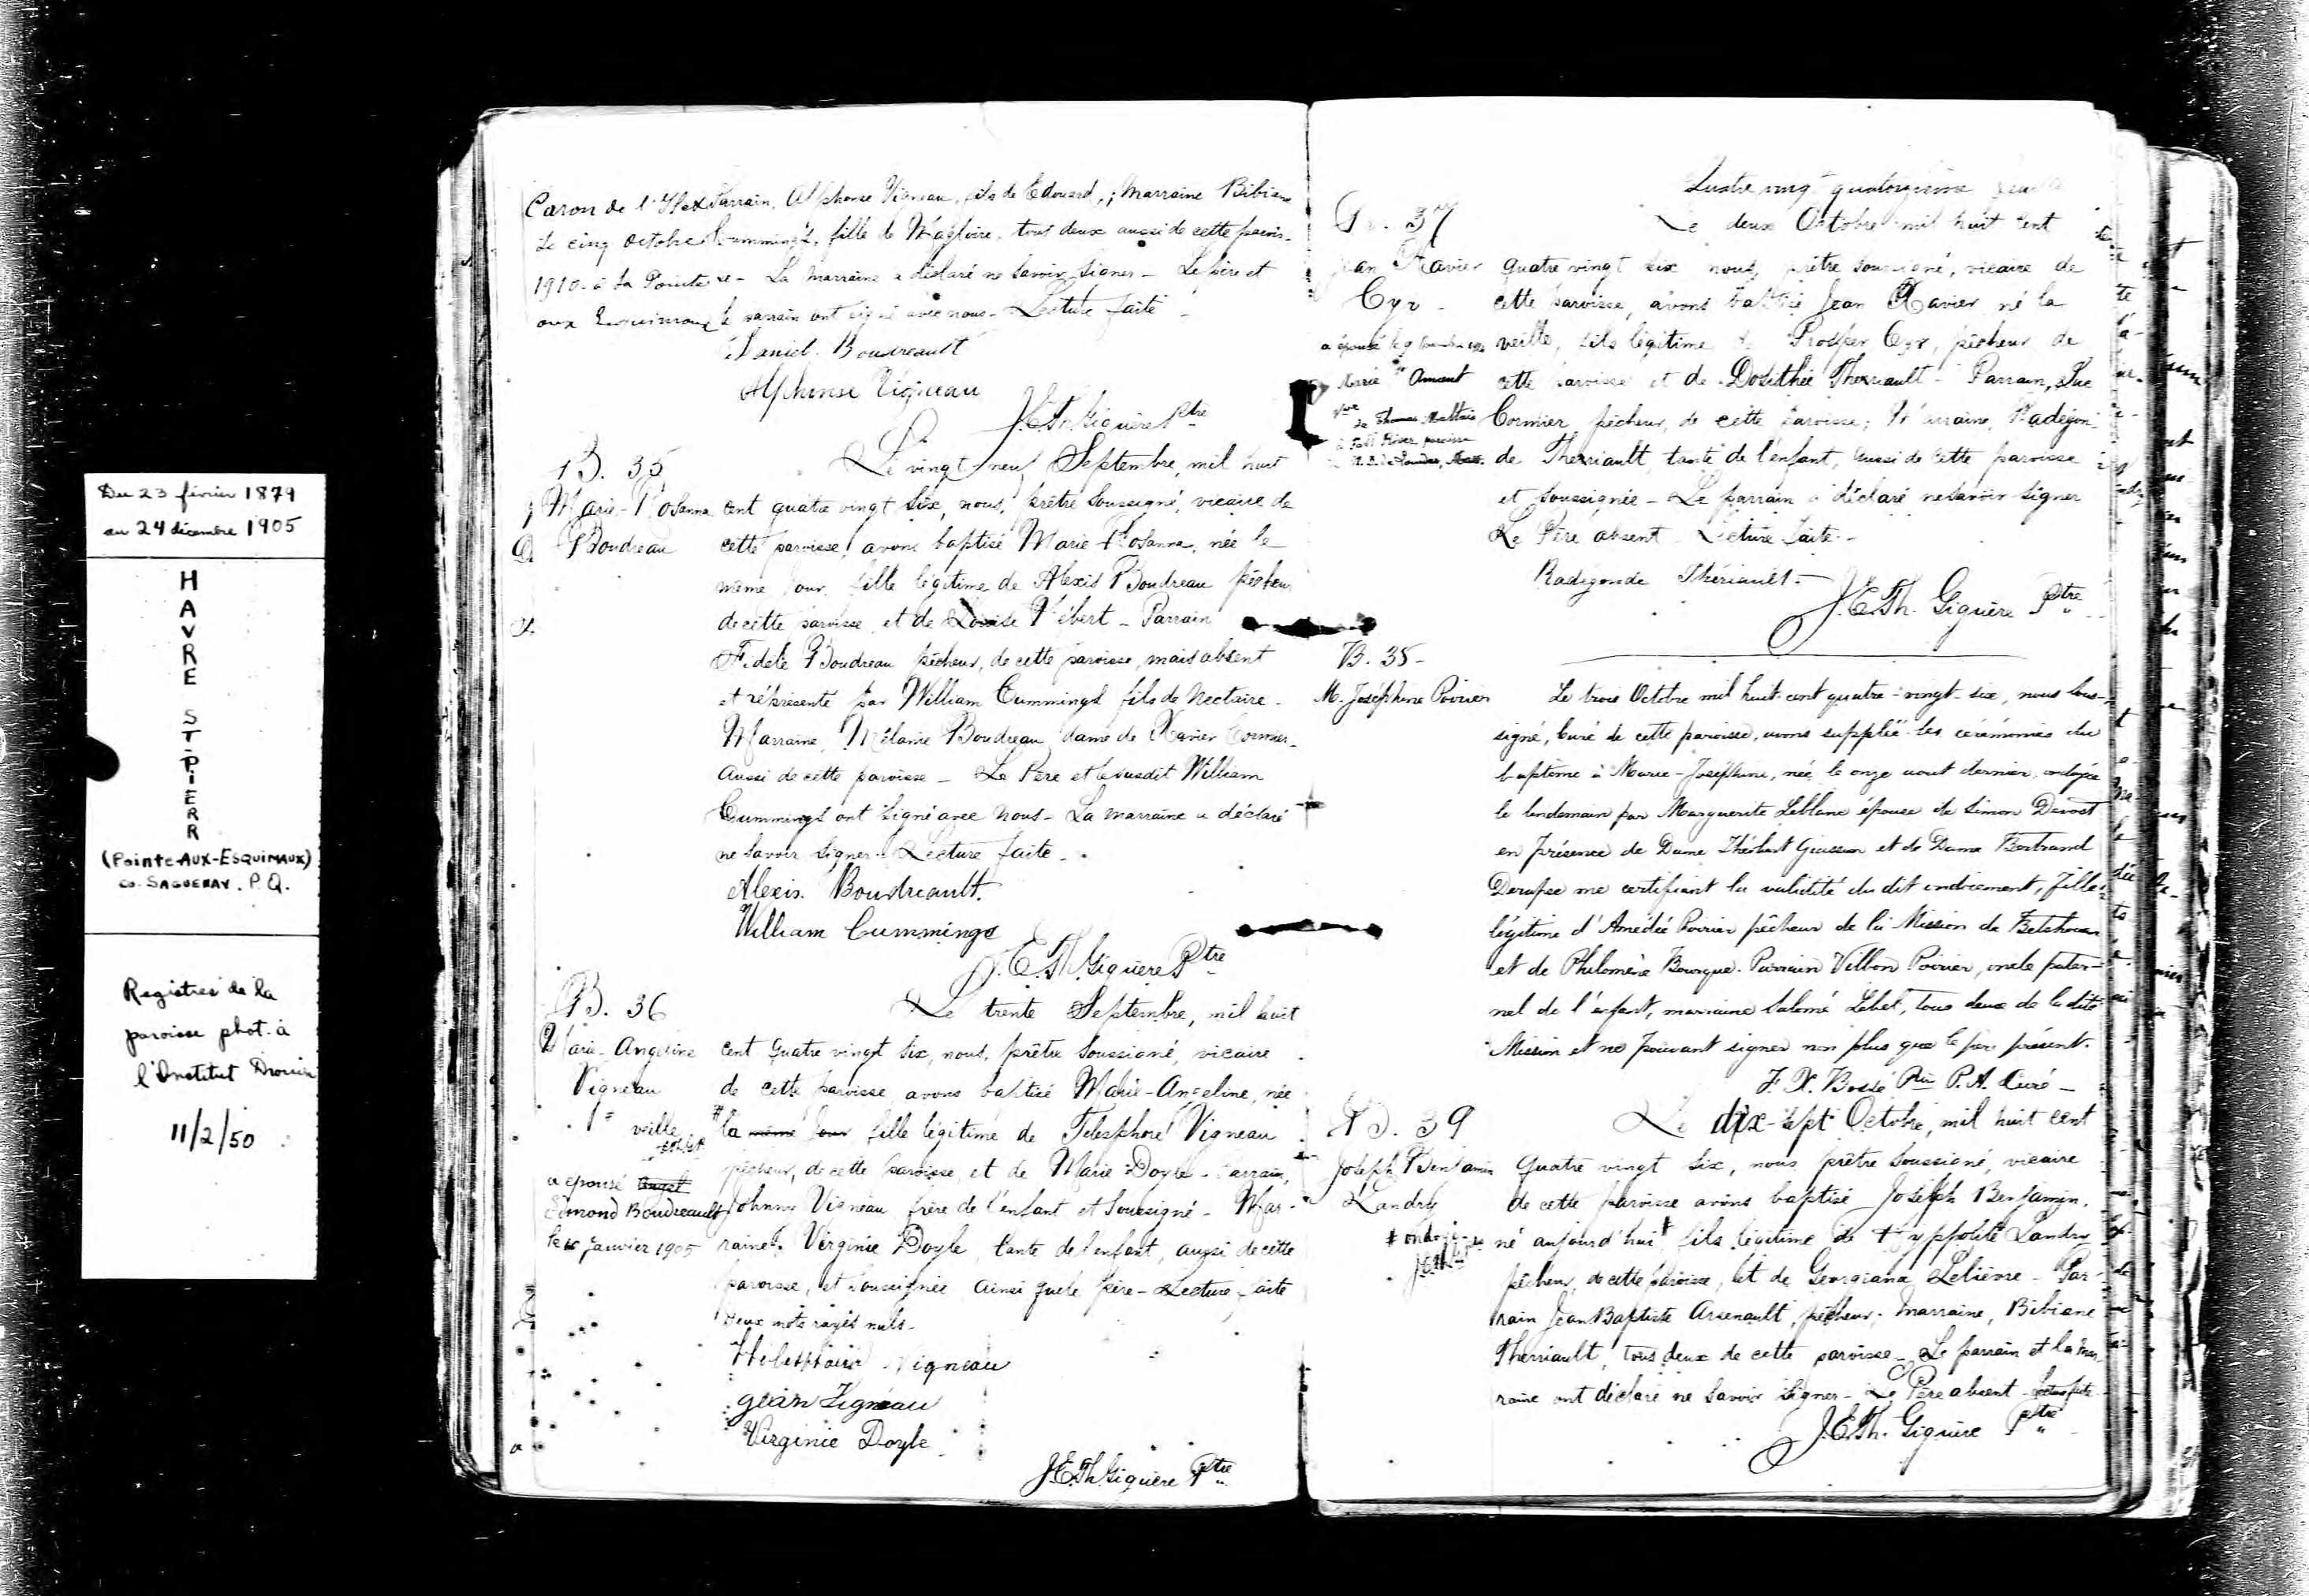 Du 23 février 1879
au 24 décembre 1905
HAVRE
ST-PIERR
(Pointe-AUX-ESQUIMAUX)
CO. SAGUENAY. P.Q.
Registres de la
paroisse phot. à
l'Institut Drouin
11/2/50
Caron de l'Islet
le cinq Octobre
1910 à la Pointe
aux Esquimaux
Parrain, Alphonse Vigneau, fils de Edouard,; Marraine Bibiane
Cummings, fille de Magloire, tous deux aussi de cette parois-
se - La marraine a déclaré ne savoir signer - Le père et
le parrain ont signé avec nous - Lecture faite -
Daniel. Boudreault
Alphonse Vigneau
J.E.Th. Giguère Ptre
B. 35
Marie-Rosanna
Boudreau
Le vingt neuf Septembre, mil huit
cent quatre vingt six, nous, prêtre soussigné, vicaire de
cette paroisse, avons baptisé Marie Rosanna, née le
même jour, fille légitime de Alexis Boudreau pêcheur
de cette paroisse et de Louise Hébert - Parrain
Fidele Boudreau pêcheur, de cette paroisse, mais absent
et réprésenté par William Cummings fils de Nectaire -
Marraine, Mélanie Boudreau, dame de Xavier Cormier -
aussi de cette paroisse - Le Père et le susdit William
Cummings ont signé avec nous - La marraine a déclaré
ne savoir signer - Lecture faite -
Alexis. Boudreault.
William Cummings
J.E.Th Giguère Ptre
B. 36
Marie-Angeline
Vigneau
veille
a épousé
Edmond Boudreault
le janvier 1905
Le trente Septembre, mil huit
cent quatre vingt six, nous, prêtre soussigné, vicaire
de cette paroisse avons baptisé Marie-Angeline, née
# la même jour fille légitime de Telesphore Vigneau
pêcheur, de cette paroisse, et de Marie Doyle - Parrain,
Johnny Vigneau frère de l'enfant et soussigné - Mar-
raine, Virginie Doyle, tante de l'enfant, aussi de cette
paroisse, et soussignée ainsi que le père - Lecture faite
Deux mots rayés nuls -
Vigneau
Virginie Doyle
J.E.Th Giguère Ptre
quatorzième
B. 37
Jean Xavier
Cyr -
a épousé le 9
Marie Amont
Vve de Thomas
à Fall River paroisse
N.D. de Lourdes, Mass.
Le deux Octobre mil huit cent
quatre vingt six nous, prêtre soussigné, vicaire de
cette paroisse, avons baptisé Jean Xavier né la
veille, fils légitime de Prosper Cyr, pêcheur de
cette paroisse et de Dosithée Therriault - Parrain, Luc
Cormier, pêcheur, de cette paroisse; Marraine, Radégon-
de Therriault, tante de l'enfant, aussi de cette paroisse
et soussignée - Le parrain a déclaré ne savoir signer
Le Père absent Lecture faite -
Radegonde Thériault -
J.E.Th. Giguère Ptre
B. 38 -
M. Joséphine Poirier
Le trois Octobre mil huit-cent quatre-vingt-six, nous sous-
signé, Curé de cette paroisse, avons supplée les cérémonies du
baptême à Marie-Joséphine, née le onze aout dernier, ondoyée
le lendemain par Marguerite Leblanc épouse de Simon Devost
en présence de Dame Giasson et de Dame Bertrand
Deraps me certifiant la validité du dit ondoiement, fille
légitime d'Amédée Poirier pêcheur de la Mission de Betchouan
et de Philomène Bourque. Parrain Poirier, oncle pater-
nel de l'enfant, marraine Salomé Lebel, tous deux de la dite
Mission et ne pouvant signer non plus que le père présent.
F. X. Bossé Ptre P.A. Curé -
B. 39
Joseph Benjamin
Landry
# ondoyé
Le dix-sept Octobre, mil huit cent
quatre vingt six, nous prêtre soussigné, vicaire
de cette paroisse avons baptisé Joseph Benjamin,
né aujourd'hui # fils légitime de Hyppolite Landry
pêcheur, de cette paroisse, et de Georgiana Lelièvre - Par-
rain Jean Baptiste Arsenault, pêcheur; marraine, Bibiane
Therriault, tous deux de cette paroisse - Le parrain et la mar-
raine ont déclaré ne savoir signer - Le Père absent - Lecture faite
J.E.Th. Giguère Ptre